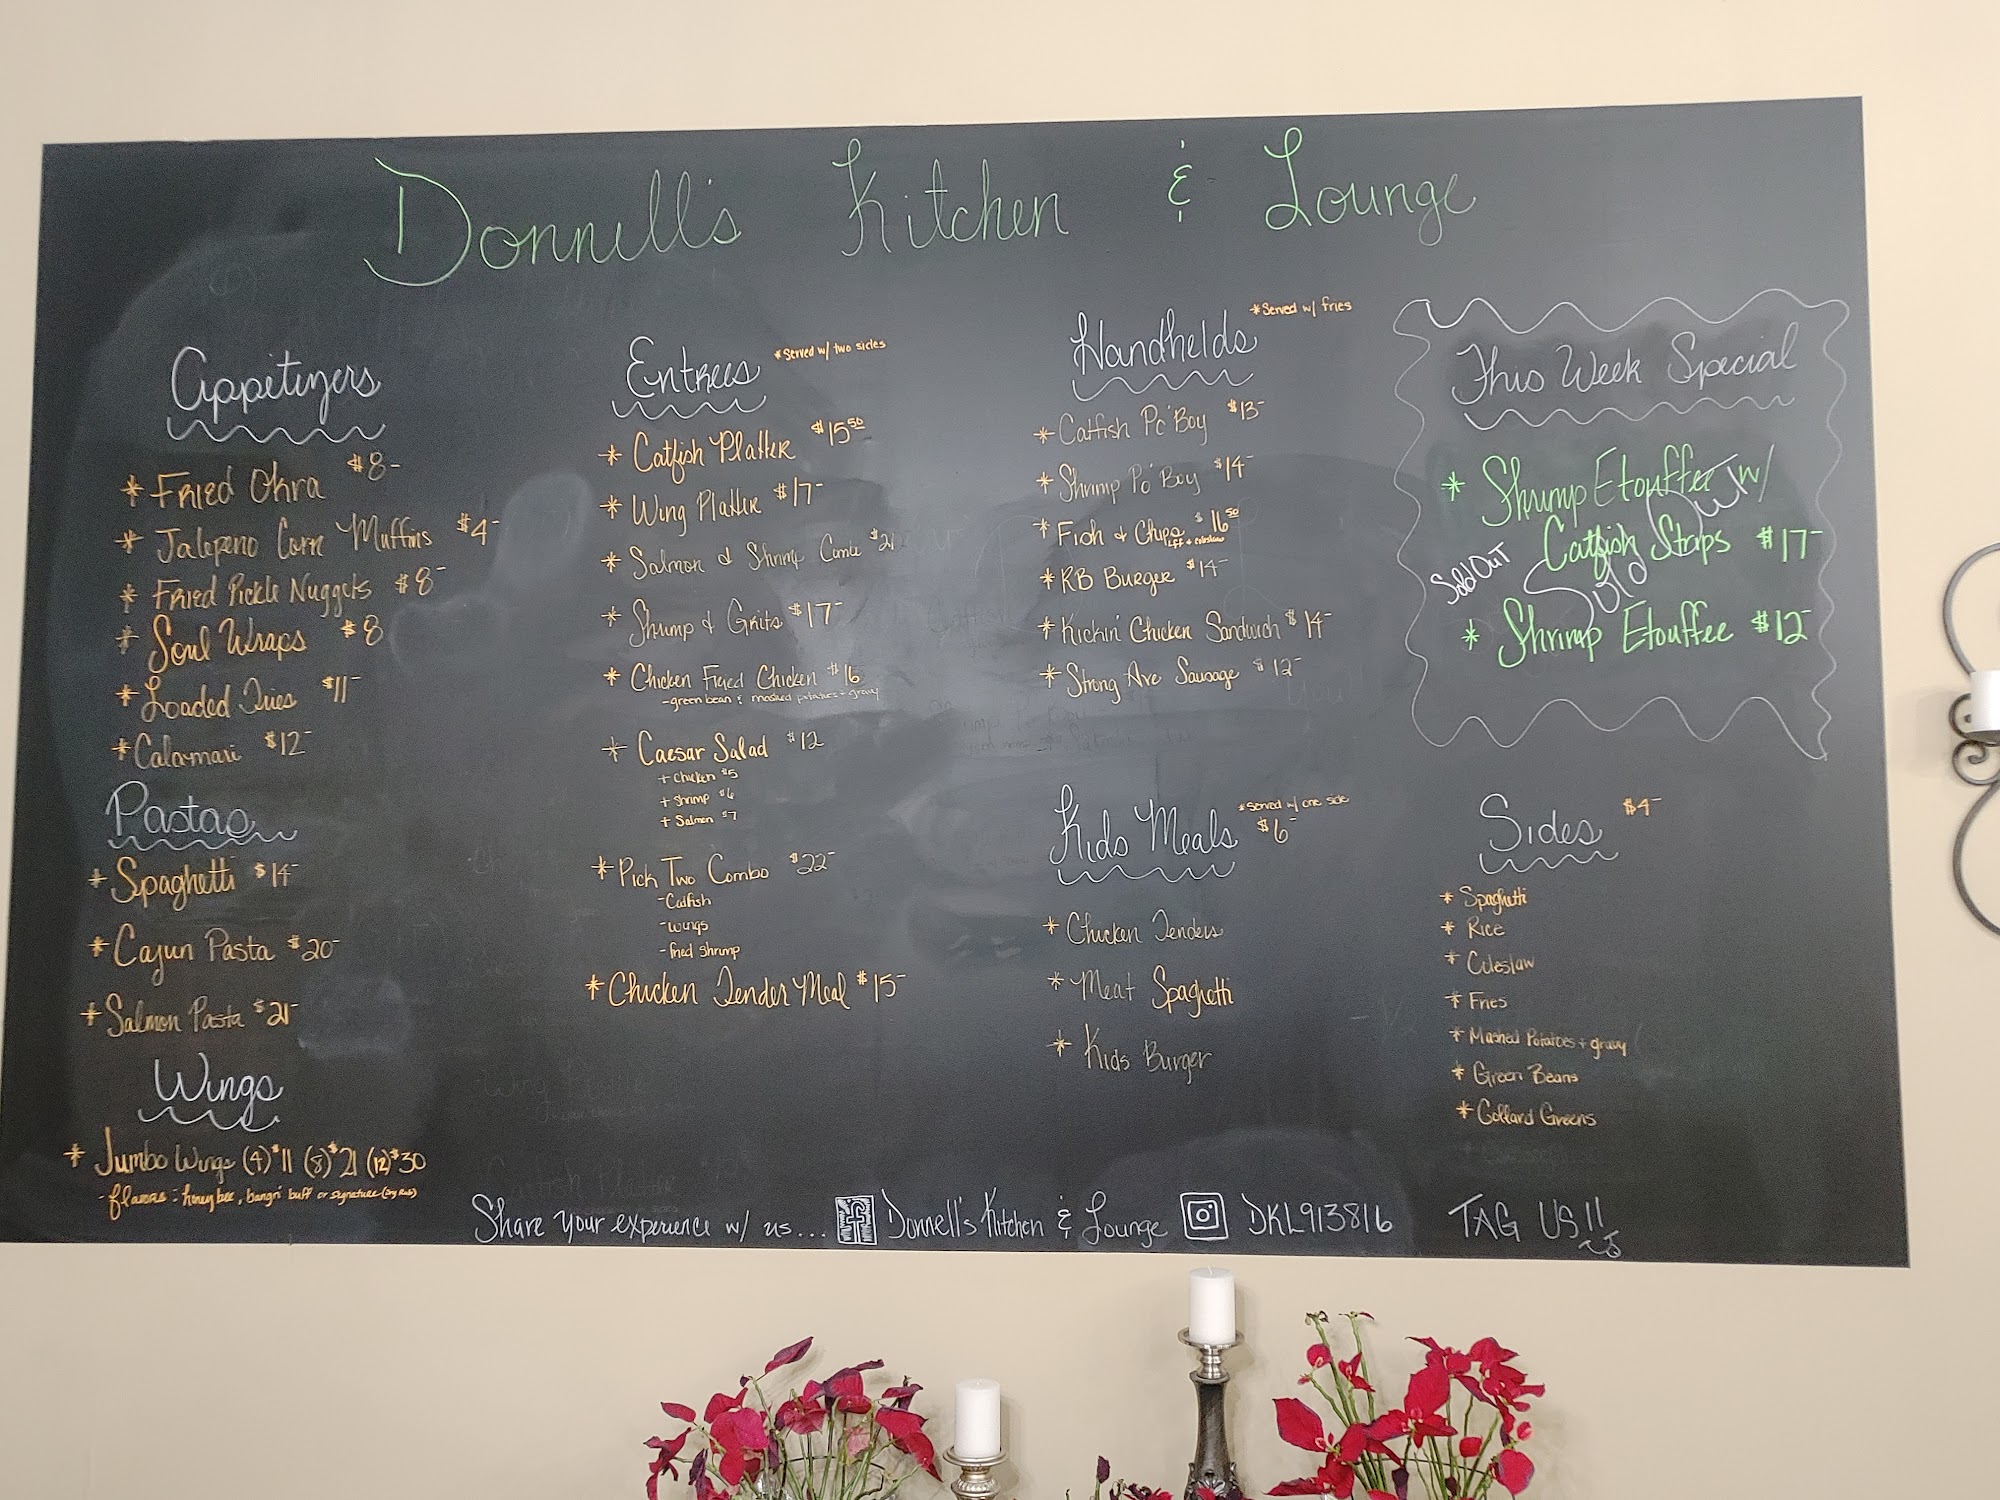 Donnell's Kitchen & Lounge
Appetizers
* Fried Okra $8-
* Jalepeno Corn Muffins $4-
* Fried Pickle Nuggets $8-
* Soul Wraps $8
* Loaded Fries $11-
* Calamari $12-
Pastas
* Spaghetti $14-
* Cajun Pasta $20-
* Salmon Pasta $21-
Wings
* Jumbo Wings (4) $11 (8) $21 (12) $30
- flavors: honey bee, bangn' buff or signature (Dry Rub)
Entrees *Served w/ two sides
* Catfish Platter $15.50
* Wing Platter $17-
* Salmon & Shrimp Combo $21-
* Shrimp & Grits $17-
* Chicken Fried Chicken $16
- green bean & mashed potatoes + gravy
* Caesar Salad $12
+ Chicken $5
+ Shrimp $6
+ Salmon $7
* Pick Two Combo $22-
- Catfish
- Wings
- fried shrimp
* Chicken Tender Meal $15-
Handhelds *Served w/ fries
* Catfish Po' Boy $13-
* Shrimp Po' Boy $14-
* Fish & Chips $16.50
* RB Burger $14-
* Kickin' Chicken Sandwich $14-
* Strong Ave Sausage $12-
Kids Meals *Served w/ one side
$6-
* Chicken Tenders
* Meat Spaghetti
* Kids Burger
This Week Special
* Shrimp Etouffee w/
Catfish Strips $17-
Sold Out
Sold Out
* Shrimp Etouffee $12-
Sides $4-
* Spaghetti
* Rice
* Coleslaw
* Fries
* Mashed Potatoes + gravy
* Green Beans
* Collard Greens
Share your experience w/ us... f Donnell's Kitchen & Lounge DKL913816 TAG US!!